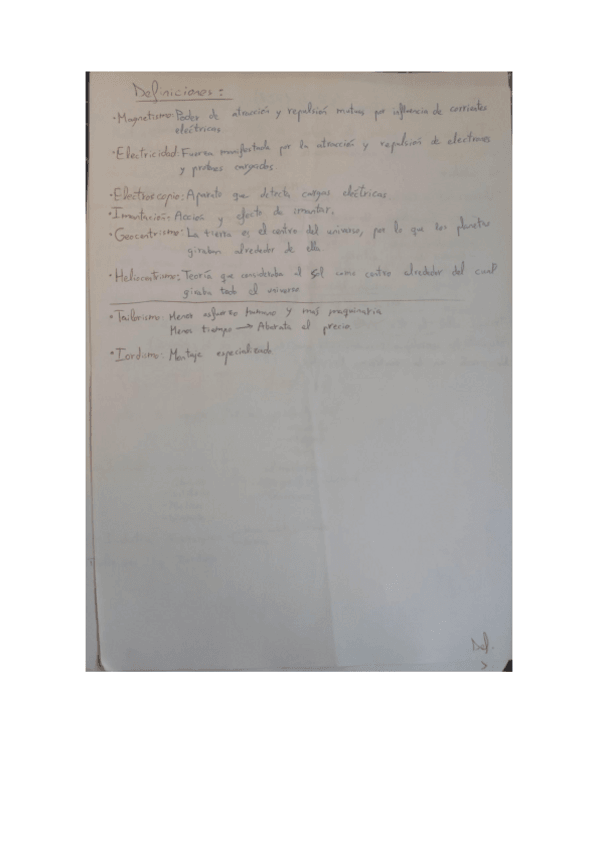 Definiciones:
·Magnetismo: Poder de atracción y repulsión mutuas por influencia de corrientes
eléctricas
·Electricidad: Fuerza manifestada por la atracción y repulsión de electrones
y protones cargados.
·Electroscopio: Aparato que detecta cargas eléctricas
·Imantación: Acción y efecto de imantar.
·Geocentrismo: La tierra es el centro del universo, por lo que los planetas
giraban alrededor de ella
·Heliocentrismo: Teoría que consideraba al Sol como centro alrededor del cual
giraba todo el universo
·Tailorismo: Menos esfuerzo humano y más maquinaria
Menos tiempo → Abarata el precio.
·Fordismo: Montaje especializado
Def.
>